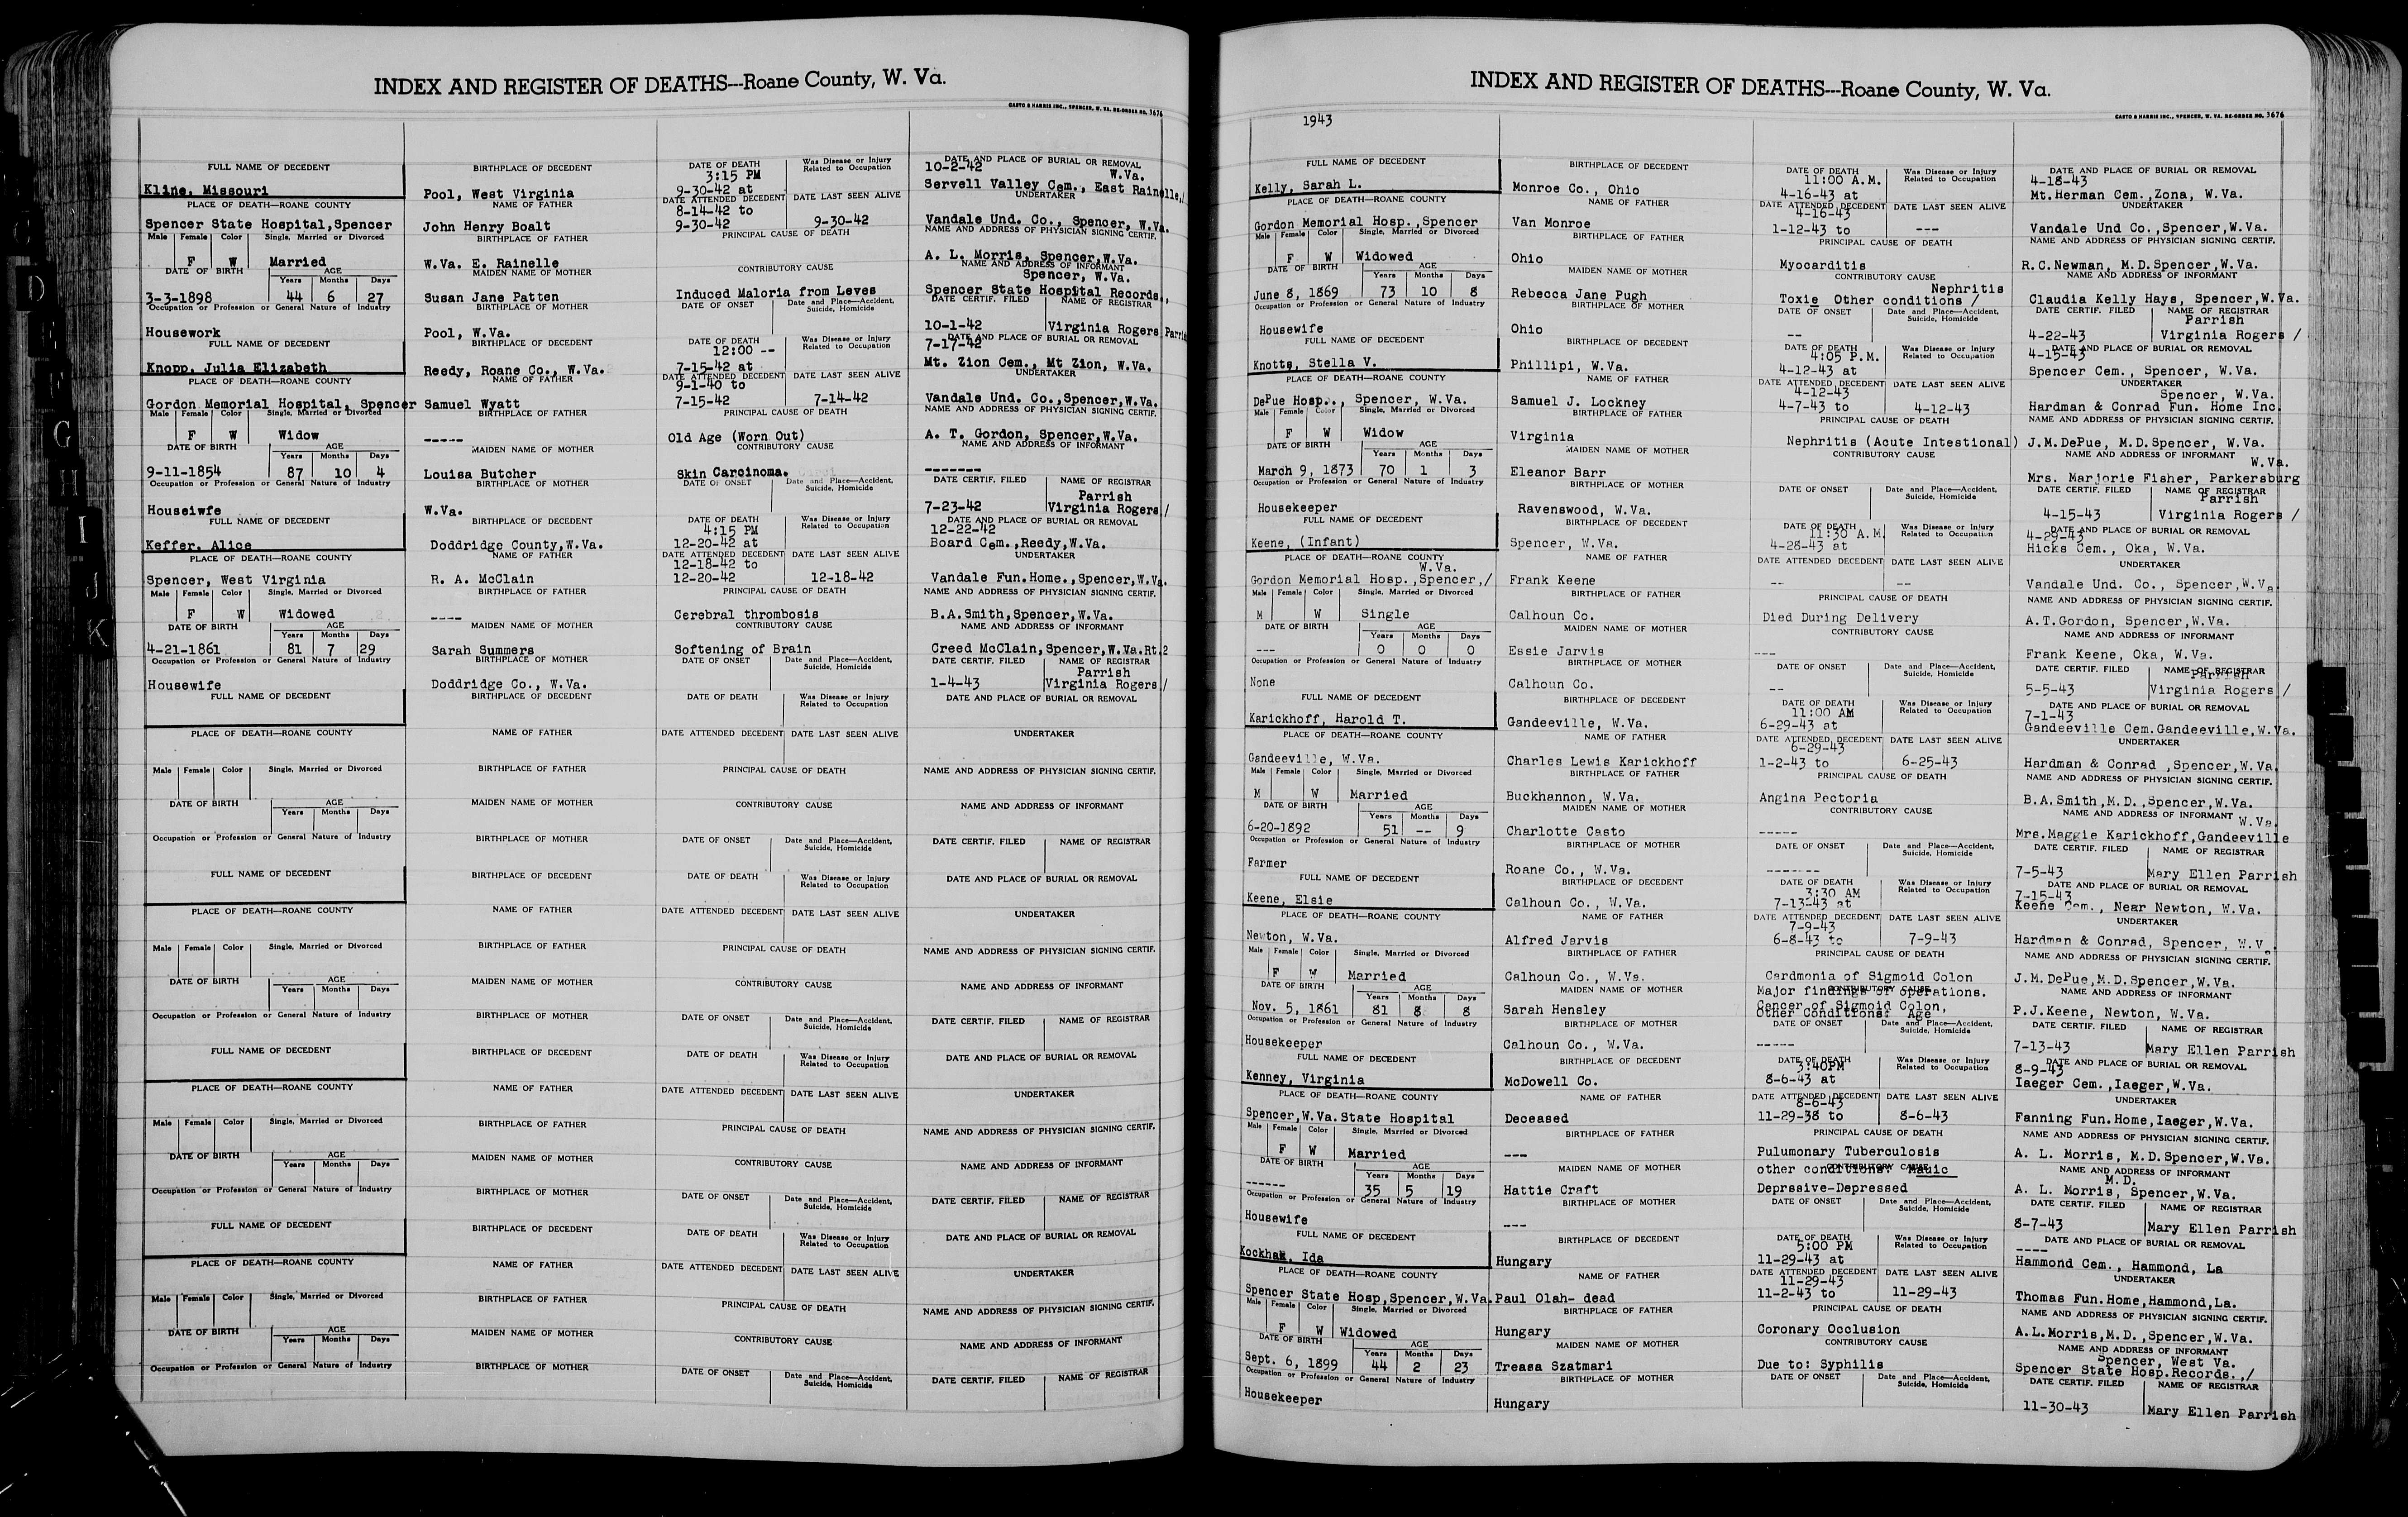 INDEX AND REGISTER OF DEATHS---Roane County, W. Va.
CASTO & HARRIS INC., SPENCER, W. VA. RE-ORDER NO. 3676
FULL NAME OF DECEDENT
Kline, Missouri
BIRTHPLACE OF DECEDENT
Pool, West Virginia
DATE OF DEATH
3:15 PM
9-30-42 at
Was Disease or Injury Related to Occupation
DATE AND PLACE OF BURIAL OR REMOVAL
10-2-42
W.Va.
Servell Valley Cem., East Rainelle,/
PLACE OF DEATH—ROANE COUNTY
Spencer State Hospital,Spencer
NAME OF FATHER
John Henry Boalt
DATE ATTENDED DECEDENT
8-14-42 to
9-30-42
DATE LAST SEEN ALIVE
9-30-42
UNDERTAKER
Vandale Und. Co., Spencer, W.Va.
Male Female Color Single, Married or Divorced
F W Married
BIRTHPLACE OF FATHER
W.Va. E. Rainelle
PRINCIPAL CAUSE OF DEATH
NAME AND ADDRESS OF PHYSICIAN SIGNING CERTIF.
A. L. Morris, Spencer,W.Va.
DATE OF BIRTH
3-3-1898
AGE
Years Months Days
44 6 27
MAIDEN NAME OF MOTHER
Susan Jane Patten
CONTRIBUTORY CAUSE
Induced Maloria from Leves
NAME AND ADDRESS OF INFORMANT
Spencer, W.Va.
Spencer State Hospital Records.,
Occupation or Profession or General Nature of Industry
Housework
BIRTHPLACE OF MOTHER
Pool, W.Va.
DATE OF ONSET
Date and Place—Accident, Suicide, Homicide
DATE CERTIF. FILED
10-1-42
NAME OF REGISTRAR
Virginia Rogers Parrish
FULL NAME OF DECEDENT
Knopp, Julia Elizabeth
BIRTHPLACE OF DECEDENT
Reedy, Roane Co., W.Va.
DATE OF DEATH
12:00 --
7-15-42 at
Was Disease or Injury Related to Occupation
DATE AND PLACE OF BURIAL OR REMOVAL
7-17-42
Mt. Zion Cem., Mt Zion, W.Va.
PLACE OF DEATH—ROANE COUNTY
Gordon Memorial Hospital, Spencer
NAME OF FATHER
Samuel Wyatt
DATE ATTENDED DECEDENT
9-1-40 to
7-15-42
DATE LAST SEEN ALIVE
7-14-42
UNDERTAKER
Vandale Und. Co., Spencer,W.Va.
Male Female Color Single, Married or Divorced
F W Widow
BIRTHPLACE OF FATHER
-----
PRINCIPAL CAUSE OF DEATH
Old Age (Worn Out)
NAME AND ADDRESS OF PHYSICIAN SIGNING CERTIF.
A. T. Gordon, Spencer,W.Va.
DATE OF BIRTH
9-11-1854
AGE
Years Months Days
87 10 4
MAIDEN NAME OF MOTHER
Louisa Butcher
CONTRIBUTORY CAUSE
Skin Carcinoma.
NAME AND ADDRESS OF INFORMANT
-------
Occupation or Profession or General Nature of Industry
Houseiwfe
BIRTHPLACE OF MOTHER
W.Va.
DATE OF ONSET
Date and Place—Accident, Suicide, Homicide
DATE CERTIF. FILED
7-23-42
NAME OF REGISTRAR
Parrish
Virginia Rogers/
FULL NAME OF DECEDENT
Keffer, Alice
BIRTHPLACE OF DECEDENT
Doddridge County,W.Va.
DATE OF DEATH
4:15 PM
12-20-42 at
Was Disease or Injury Related to Occupation
DATE AND PLACE OF BURIAL OR REMOVAL
12-22-42
Board Cem.,Reedy,W.Va.
PLACE OF DEATH—ROANE COUNTY
Spencer, West Virginia
NAME OF FATHER
R. A. McClain
DATE ATTENDED DECEDENT
12-18-42 to
12-20-42
DATE LAST SEEN ALIVE
12-18-42
UNDERTAKER
Vandale Fun.Home.,Spencer,W.Va.
Male Female Color Single, Married or Divorced
F W Widowed
BIRTHPLACE OF FATHER
----
PRINCIPAL CAUSE OF DEATH
Cerebral thrombosis
NAME AND ADDRESS OF PHYSICIAN SIGNING CERTIF.
B.A.Smith,Spencer,W.Va.
DATE OF BIRTH
4-21-1861
AGE
Years Months Days
81 7 29
MAIDEN NAME OF MOTHER
Sarah Summers
CONTRIBUTORY CAUSE
Softening of Brain
NAME AND ADDRESS OF INFORMANT
Creed McClain,Spencer,W.Va.Rt.2
Occupation or Profession or General Nature of Industry
Housewife
BIRTHPLACE OF MOTHER
Doddridge Co., W.Va.
DATE OF ONSET
Date and Place—Accident, Suicide, Homicide
DATE CERTIF. FILED
1-4-43
NAME OF REGISTRAR
Parrish
Virginia Rogers/
FULL NAME OF DECEDENT
BIRTHPLACE OF DECEDENT
DATE OF DEATH
Was Disease or Injury Related to Occupation
DATE AND PLACE OF BURIAL OR REMOVAL
PLACE OF DEATH—ROANE COUNTY
NAME OF FATHER
DATE ATTENDED DECEDENT
DATE LAST SEEN ALIVE
UNDERTAKER
Male Female Color Single, Married or Divorced
BIRTHPLACE OF FATHER
PRINCIPAL CAUSE OF DEATH
NAME AND ADDRESS OF PHYSICIAN SIGNING CERTIF.
DATE OF BIRTH
AGE
Years Months Days
MAIDEN NAME OF MOTHER
CONTRIBUTORY CAUSE
NAME AND ADDRESS OF INFORMANT
Occupation or Profession or General Nature of Industry
BIRTHPLACE OF MOTHER
DATE OF ONSET
Date and Place—Accident, Suicide, Homicide
DATE CERTIF. FILED
NAME OF REGISTRAR
FULL NAME OF DECEDENT
BIRTHPLACE OF DECEDENT
DATE OF DEATH
Was Disease or Injury Related to Occupation
DATE AND PLACE OF BURIAL OR REMOVAL
PLACE OF DEATH—ROANE COUNTY
NAME OF FATHER
DATE ATTENDED DECEDENT
DATE LAST SEEN ALIVE
UNDERTAKER
Male Female Color Single, Married or Divorced
BIRTHPLACE OF FATHER
PRINCIPAL CAUSE OF DEATH
NAME AND ADDRESS OF PHYSICIAN SIGNING CERTIF.
DATE OF BIRTH
AGE
Years Months Days
MAIDEN NAME OF MOTHER
CONTRIBUTORY CAUSE
NAME AND ADDRESS OF INFORMANT
Occupation or Profession or General Nature of Industry
BIRTHPLACE OF MOTHER
DATE OF ONSET
Date and Place—Accident, Suicide, Homicide
DATE CERTIF. FILED
NAME OF REGISTRAR
FULL NAME OF DECEDENT
BIRTHPLACE OF DECEDENT
DATE OF DEATH
Was Disease or Injury Related to Occupation
DATE AND PLACE OF BURIAL OR REMOVAL
PLACE OF DEATH—ROANE COUNTY
NAME OF FATHER
DATE ATTENDED DECEDENT
DATE LAST SEEN ALIVE
UNDERTAKER
Male Female Color Single, Married or Divorced
BIRTHPLACE OF FATHER
PRINCIPAL CAUSE OF DEATH
NAME AND ADDRESS OF PHYSICIAN SIGNING CERTIF.
DATE OF BIRTH
AGE
Years Months Days
MAIDEN NAME OF MOTHER
CONTRIBUTORY CAUSE
NAME AND ADDRESS OF INFORMANT
Occupation or Profession or General Nature of Industry
BIRTHPLACE OF MOTHER
DATE OF ONSET
Date and Place—Accident, Suicide, Homicide
DATE CERTIF. FILED
NAME OF REGISTRAR
FULL NAME OF DECEDENT
BIRTHPLACE OF DECEDENT
DATE OF DEATH
Was Disease or Injury Related to Occupation
DATE AND PLACE OF BURIAL OR REMOVAL
PLACE OF DEATH—ROANE COUNTY
NAME OF FATHER
DATE ATTENDED DECEDENT
DATE LAST SEEN ALIVE
UNDERTAKER
Male Female Color Single, Married or Divorced
BIRTHPLACE OF FATHER
PRINCIPAL CAUSE OF DEATH
NAME AND ADDRESS OF PHYSICIAN SIGNING CERTIF.
DATE OF BIRTH
AGE
Years Months Days
MAIDEN NAME OF MOTHER
CONTRIBUTORY CAUSE
NAME AND ADDRESS OF INFORMANT
Occupation or Profession or General Nature of Industry
BIRTHPLACE OF MOTHER
DATE OF ONSET
Date and Place—Accident, Suicide, Homicide
DATE CERTIF. FILED
NAME OF REGISTRAR
D
G
H
I
J
K
INDEX AND REGISTER OF DEATHS---Roane County, W. Va.
CASTO & HARRIS INC., SPENCER, W. VA. RE-ORDER NO. 3676
1943
FULL NAME OF DECEDENT
Kelly, Sarah L.
BIRTHPLACE OF DECEDENT
Monroe Co., Ohio
DATE OF DEATH
11:00 A.M.
4-16-43 at
Was Disease or Injury Related to Occupation
DATE AND PLACE OF BURIAL OR REMOVAL
4-18-43
Mt.Herman Cem.,Zona, W.Va.
PLACE OF DEATH—ROANE COUNTY
Gordon Memorial Hosp.,Spencer
NAME OF FATHER
Van Monroe
DATE ATTENDED DECEDENT
4-16-43
1-12-43 to
DATE LAST SEEN ALIVE
---
UNDERTAKER
Vandale Und Co.,Spencer,W.Va.
Male Female Color Single, Married or Divorced
F W Widowed
BIRTHPLACE OF FATHER
Ohio
PRINCIPAL CAUSE OF DEATH
Myocarditis
NAME AND ADDRESS OF PHYSICIAN SIGNING CERTIF.
R.C.Newman, M.D.Spencer,W.Va.
DATE OF BIRTH
June 8, 1869
AGE
Years Months Days
73 10 8
MAIDEN NAME OF MOTHER
Rebecca Jane Pugh
CONTRIBUTORY CAUSE
Nephritis
Toxie Other conditions /
NAME AND ADDRESS OF INFORMANT
Claudia Kelly Hays, Spencer,W.Va.
Occupation or Profession or General Nature of Industry
Housewife
BIRTHPLACE OF MOTHER
Ohio
DATE OF ONSET
--
Date and Place—Accident, Suicide, Homicide
DATE CERTIF. FILED
4-22-43
NAME OF REGISTRAR
Parrish
Virginia Rogers /
FULL NAME OF DECEDENT
Knotts, Stella V.
BIRTHPLACE OF DECEDENT
Phillipi, W.Va.
DATE OF DEATH
4:05 P.M.
4-12-43 at
Was Disease or Injury Related to Occupation
DATE AND PLACE OF BURIAL OR REMOVAL
4-15-43
Spencer Cem., Spencer, W.Va.
PLACE OF DEATH—ROANE COUNTY
DePue Hosp., Spencer, W.Va.
NAME OF FATHER
Samuel J. Lockney
DATE ATTENDED DECEDENT
4-12-43
4-7-43 to
DATE LAST SEEN ALIVE
4-12-43
UNDERTAKER
Spencer, W.Va.
Hardman & Conrad Fun. Home Inc.
Male Female Color Single, Married or Divorced
F W Widow
BIRTHPLACE OF FATHER
Virginia
PRINCIPAL CAUSE OF DEATH
Nephritis (Acute Intestional)
NAME AND ADDRESS OF PHYSICIAN SIGNING CERTIF.
J.M.DePue, M.D.Spencer, W.Va.
DATE OF BIRTH
March 9, 1873
AGE
Years Months Days
70 1 3
MAIDEN NAME OF MOTHER
Eleanor Barr
CONTRIBUTORY CAUSE
NAME AND ADDRESS OF INFORMANT
W.Va.
Mrs. Marjorie Fisher, Parkersburg
Occupation or Profession or General Nature of Industry
Housekeeper
BIRTHPLACE OF MOTHER
Ravenswood, W.Va.
DATE OF ONSET
Date and Place—Accident, Suicide, Homicide
DATE CERTIF. FILED
4-15-43
NAME OF REGISTRAR
Parrish
Virginia Rogers /
FULL NAME OF DECEDENT
Keene, (Infant)
BIRTHPLACE OF DECEDENT
Spencer, W.Va.
DATE OF DEATH
11:30 A.M.
4-28-43 at
Was Disease or Injury Related to Occupation
DATE AND PLACE OF BURIAL OR REMOVAL
4-29-43
Hicks Cem., Oka, W.Va.
PLACE OF DEATH—ROANE COUNTY
W.Va.
Gordon Memorial Hosp.,Spencer,/
NAME OF FATHER
Frank Keene
DATE ATTENDED DECEDENT
--
DATE LAST SEEN ALIVE
--
UNDERTAKER
Vandale Und. Co., Spencer,W.Va
Male Female Color Single, Married or Divorced
M W Single
BIRTHPLACE OF FATHER
Calhoun Co.
PRINCIPAL CAUSE OF DEATH
Died During Delivery
NAME AND ADDRESS OF PHYSICIAN SIGNING CERTIF.
A.T.Gordon, Spencer,W.Va.
DATE OF BIRTH
---
AGE
Years Months Days
0 0 0
MAIDEN NAME OF MOTHER
Essie Jarvis
CONTRIBUTORY CAUSE
---
NAME AND ADDRESS OF INFORMANT
Frank Keene, Oka, W.Va.
Occupation or Profession or General Nature of Industry
None
BIRTHPLACE OF MOTHER
Calhoun Co.
DATE OF ONSET
--
Date and Place—Accident, Suicide, Homicide
DATE CERTIF. FILED
5-5-43
NAME OF REGISTRAR
Parrish
Virginia Rogers /
FULL NAME OF DECEDENT
Karickhoff, Harold T.
BIRTHPLACE OF DECEDENT
Gandeeville, W.Va.
DATE OF DEATH
11:00 AM
6-29-43 at
Was Disease or Injury Related to Occupation
DATE AND PLACE OF BURIAL OR REMOVAL
7-1-43
Gandeeville Cem.Gandeeville,W.Va.
PLACE OF DEATH—ROANE COUNTY
Gandeeville, W.Va.
NAME OF FATHER
Charles Lewis Karickhoff
DATE ATTENDED DECEDENT
6-29-43
1-2-43 to
DATE LAST SEEN ALIVE
6-25-43
UNDERTAKER
Hardman & Conrad ,Spencer,W.Va.
Male Female Color Single, Married or Divorced
M W Married
BIRTHPLACE OF FATHER
Buckhannon, W.Va.
PRINCIPAL CAUSE OF DEATH
Angina Pectoria
NAME AND ADDRESS OF PHYSICIAN SIGNING CERTIF.
B.A.Smith,M.D.,Spencer,W.Va.
DATE OF BIRTH
6-20-1892
AGE
Years Months Days
51 -- 9
MAIDEN NAME OF MOTHER
Charlotte Casto
CONTRIBUTORY CAUSE
-----
NAME AND ADDRESS OF INFORMANT
W.Va.
Mrs.Maggie Karickhoff,Gandeeville
Occupation or Profession or General Nature of Industry
Farmer
BIRTHPLACE OF MOTHER
Roane Co., W.Va.
DATE OF ONSET
-------
Date and Place—Accident, Suicide, Homicide
DATE CERTIF. FILED
7-5-43
NAME OF REGISTRAR
Mary Ellen Parrish
FULL NAME OF DECEDENT
Keene, Elsie
BIRTHPLACE OF DECEDENT
Calhoun Co., W.Va.
DATE OF DEATH
3:30 AM
7-13-43 at
Was Disease or Injury Related to Occupation
DATE AND PLACE OF BURIAL OR REMOVAL
7-15-43
Keene Cem., Near Newton, W.Va.
PLACE OF DEATH—ROANE COUNTY
Newton, W.Va.
NAME OF FATHER
Alfred Jarvis
DATE ATTENDED DECEDENT
7-9-43
6-8-43 to
DATE LAST SEEN ALIVE
7-9-43
UNDERTAKER
Hardman & Conrad, Spencer, W.Va.
Male Female Color Single, Married or Divorced
F W Married
BIRTHPLACE OF FATHER
Calhoun Co., W.Va.
PRINCIPAL CAUSE OF DEATH
Cardmonia of Sigmoid Colon
NAME AND ADDRESS OF PHYSICIAN SIGNING CERTIF.
J.M.DePue,M.D.Spencer,W.Va.
DATE OF BIRTH
Nov. 5, 1861
AGE
Years Months Days
81 8 8
MAIDEN NAME OF MOTHER
Sarah Hensley
CONTRIBUTORY CAUSE
Major findings of operations.
Cancer of Sigmoid Colon,
Other Conditions: Age
NAME AND ADDRESS OF INFORMANT
P.J.Keene, Newton, W.Va.
Occupation or Profession or General Nature of Industry
Housekeeper
BIRTHPLACE OF MOTHER
Calhoun Co., W.Va.
DATE OF ONSET
-----
Date and Place—Accident, Suicide, Homicide
DATE CERTIF. FILED
7-13-43
NAME OF REGISTRAR
Mary Ellen Parrish
FULL NAME OF DECEDENT
Kenney, Virginia
BIRTHPLACE OF DECEDENT
McDowell Co.
DATE OF DEATH
3:40PM
8-6-43 at
Was Disease or Injury Related to Occupation
DATE AND PLACE OF BURIAL OR REMOVAL
8-9-43
Iaeger Cem.,Iaeger,W.Va.
PLACE OF DEATH—ROANE COUNTY
Spencer,W.Va.State Hospital
NAME OF FATHER
Deceased
DATE ATTENDED DECEDENT
8-6-43
11-29-38 to
DATE LAST SEEN ALIVE
8-6-43
UNDERTAKER
Fanning Fun.Home,Iaeger,W.Va.
Male Female Color Single, Married or Divorced
F W Married
BIRTHPLACE OF FATHER
---
PRINCIPAL CAUSE OF DEATH
Pulumonary Tuberculosis
NAME AND ADDRESS OF PHYSICIAN SIGNING CERTIF.
A. L. Morris, M.D.Spencer,W.Va.
DATE OF BIRTH
------
AGE
Years Months Days
35 5 19
MAIDEN NAME OF MOTHER
Hattie Craft
CONTRIBUTORY CAUSE
other conditions: Mauic
Deprssive-Depressed
NAME AND ADDRESS OF INFORMANT
M.D.
A. L. Morris, Spencer,W.Va.
Occupation or Profession or General Nature of Industry
Housewife
BIRTHPLACE OF MOTHER
---
DATE OF ONSET
Date and Place—Accident, Suicide, Homicide
DATE CERTIF. FILED
8-7-43
NAME OF REGISTRAR
Mary Ellen Parrish
FULL NAME OF DECEDENT
Kockham, Ida
BIRTHPLACE OF DECEDENT
Hungary
DATE OF DEATH
5:00 PM
11-29-43 at
Was Disease or Injury Related to Occupation
DATE AND PLACE OF BURIAL OR REMOVAL
----
Hammond Cem., Hammond, La
PLACE OF DEATH—ROANE COUNTY
Spencer State Hosp,Spencer,W.Va.
NAME OF FATHER
Paul Olah- dead
DATE ATTENDED DECEDENT
11-29-43
11-2-43 to
DATE LAST SEEN ALIVE
11-29-43
UNDERTAKER
Thomas Fun.Home,Hammond,La.
Male Female Color Single, Married or Divorced
F W Widowed
BIRTHPLACE OF FATHER
Hungary
PRINCIPAL CAUSE OF DEATH
Coronary Occlusion
NAME AND ADDRESS OF PHYSICIAN SIGNING CERTIF.
A.L.Morris,M.D.,Spencer,W.Va.
DATE OF BIRTH
Sept. 6, 1899
AGE
Years Months Days
44 2 23
MAIDEN NAME OF MOTHER
Treasa Szatmari
CONTRIBUTORY CAUSE
Due to: Syphilis
NAME AND ADDRESS OF INFORMANT
Spencer, West Va.
Spencer State Hosp.Records.,/
Occupation or Profession or General Nature of Industry
Housekeeper
BIRTHPLACE OF MOTHER
Hungary
DATE OF ONSET
Date and Place—Accident, Suicide, Homicide
DATE CERTIF. FILED
11-30-43
NAME OF REGISTRAR
Mary Ellen Parrish